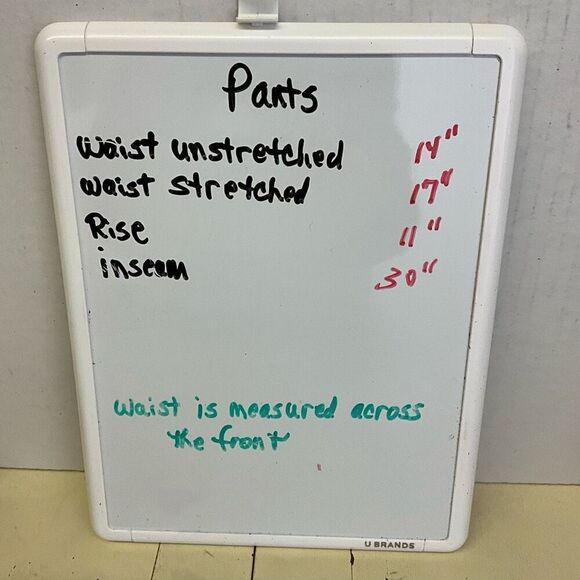 Pants
waist unstretched 14"
waist stretched 17"
Rise 11"
inseam 30"
waist is measured across
the front
U BRANDS